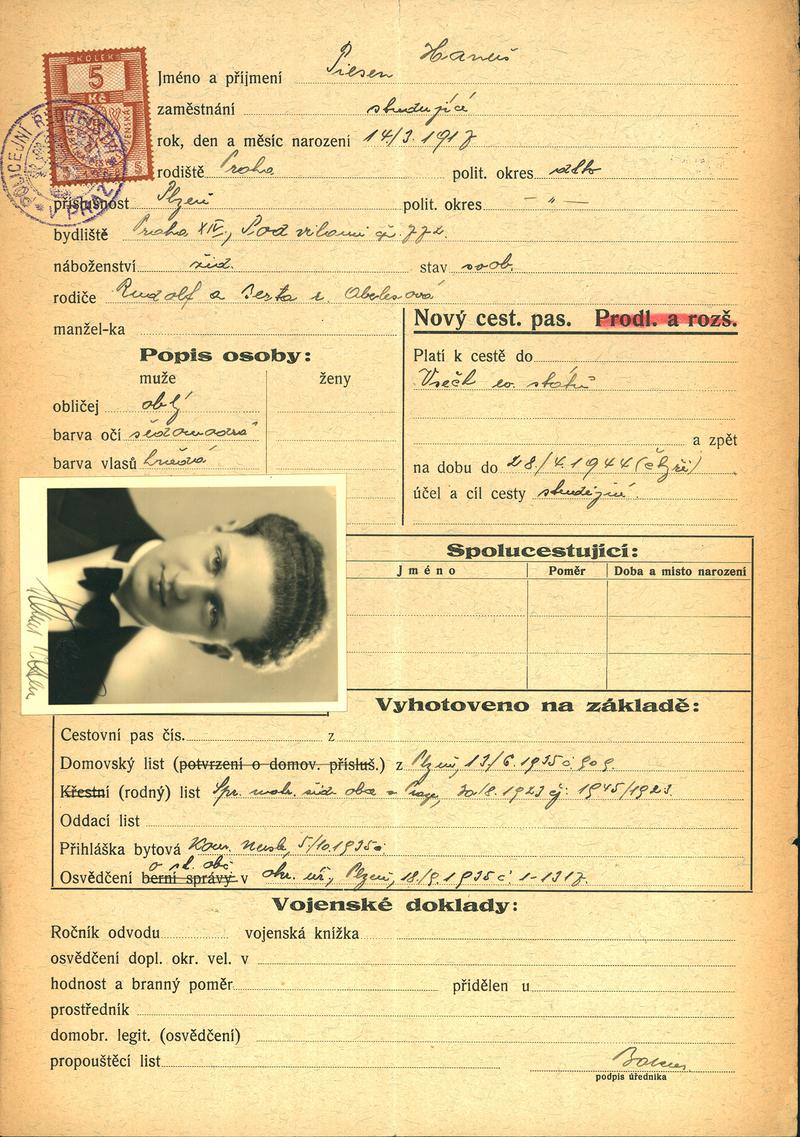 KOLEK
5
Kč
POLICEJNÍ ŘEDITELSTVÍ V PRAZE
Jméno a příjmení Piesen Hanuš
zaměstnání studující
rok, den a měsíc narození 14/3. 1917
rodiště Praha polit. okres dtto
příslušnost Plzeň polit. okres — " —
bydliště Praha XIV., Pod vilami čp. 772.
náboženství žid. stav svob.
rodiče Rudolf a Berta r. Obelesová
manžel-ka
Nový cest. pas. Prodl. a rozš.
Popis osoby:
muže ženy
obličej oblý
barva očí šedomodrá
barva vlasů hnědá
Platí k cestě do
Všech ev. států
a zpět
na dobu do 28/4. 1944 (čtyři)
účel a cíl cesty studijní
Spolucestující:
Jméno Poměr Doba a místo narození
Vyhotoveno na základě:
Cestovní pas čís. z
Domovský list (potvrzení o domov. přísluš.) z Plzeň, 13/6. 1935 č. 909.
Křestní (rodný) list žid. obce v Praze, 30/8. 1923 čj: 1945/1923.
Oddací list
Přihláška bytová Kom. Nusle, 5/10. 1935
o st. obč.
Osvědčení berní správy v okr. úř., Plzeň, 18/9. 1935 č. 1-1317.
Vojenské doklady:
Ročník odvodu vojenská knížka
osvědčení dopl. okr. vel. v
hodnost a branný poměr přidělen u
prostředník
domobr. legit. (osvědčení)
propouštěcí list
podpis úředníka